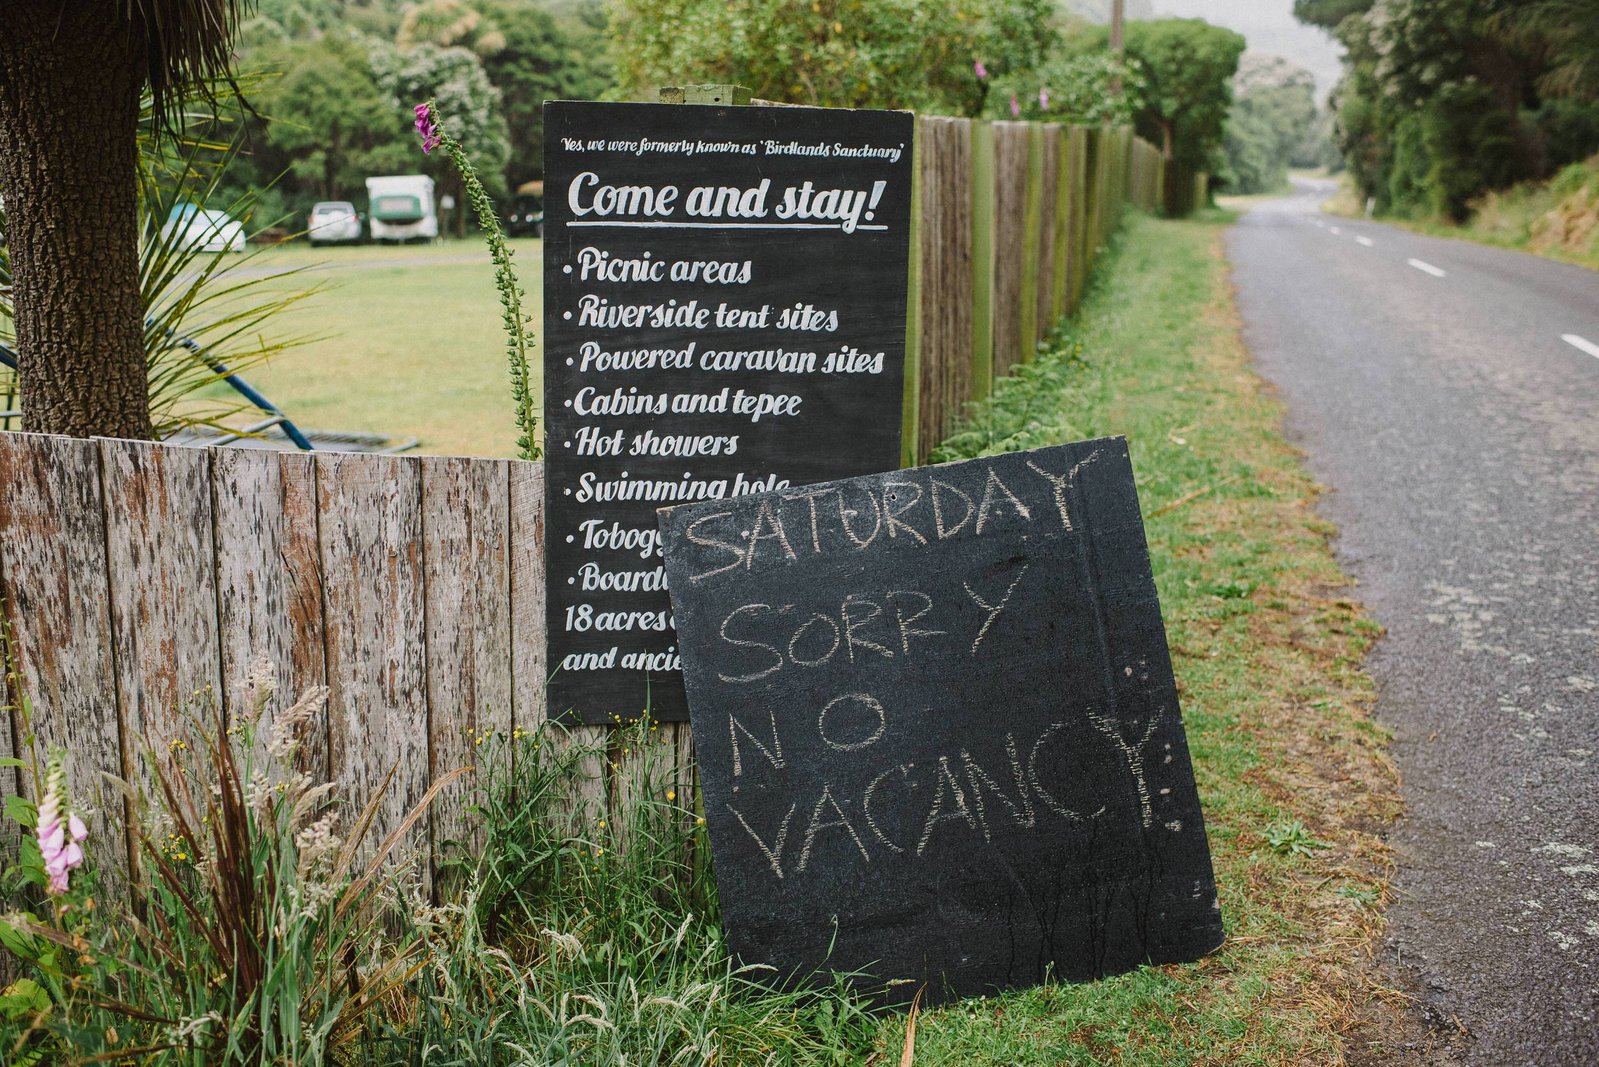 Yes, we were formerly known as 'Birdlands Sanctuary'
Come and stay!
• Picnic areas
• Riverside tent sites
• Powered caravan sites
• Cabins and tepee
• Hot showers
• Swimming hole
• Tobogg
• Board
18 acres
and ancie
SATURDAY
SORRY
NO
VACANCY